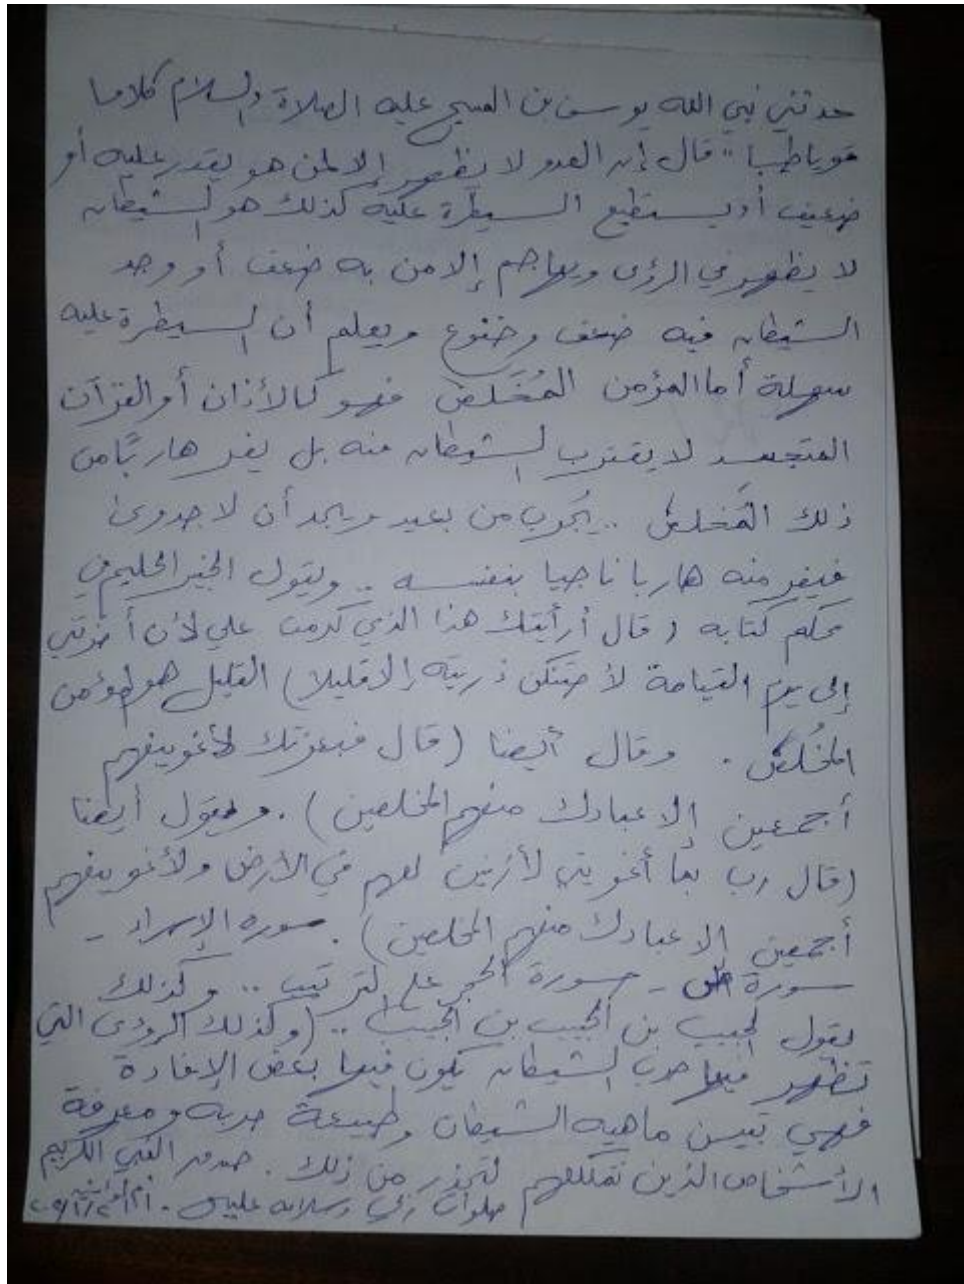 حدثني نبي الله يوسف بن المسيح عليه الصلاة والسلام كلاما
قويا طيبا قال إن العدو لا يظهر إلا لمن هو يقدر عليه أو
ضعيف أو يستطيع السيطرة عليه كذلك هو الشيطان
لا يظهر في الرؤى ويهاجم إلا من به ضعف أو وجد
الشيطان فيه ضعف وخنوع ويعلم أن السيطرة عليه
سهلة أما المؤمن المُخلَص فهو كالأذان أو القرآن
المتجسد لا يقترب الشيطان منه بل يفر هاربًا من
ذلك المُخلَص .. يُجرب من بعيد ويجد أن لا جدوى
فيفر منه هاربا ناجيا بنفسه .. ويقول الخبير الحليم في
محكم كتابه (قال أرأيتك هذا الذي كرمت علي لأن أخرتني
إلى يوم القيامة لأحتنكن ذريته إلا قليلا) القليل هو المؤمن
المُخلَص . وقال أيضا (قال فبعزتك لأغوينهم
أجمعين إلا عبادك منهم المخلصين) . ويقول أيضا
(قال رب بما أغويتني لأزينن لهم في الأرض ولأغوينهم
أجمعين إلا عبادك منهم المخلصين) . سورة الإسراء -
سورة ص - سورة الحجر على الترتيب .. وكذلك
يقول الحبيب بن الحبيب بن الحبيب .. (وكذلك الرؤى التي
تظهر فيها حرب الشيطان يكون فيها بعض الإفادة
فهي تبين ماهية الشيطان وطبيعة حربه ومعرفة
الأشخاص الذين تملكهم لتحذر من ذلك . صدق النبي الكريم
صلوات ربي وسلامه عليه .